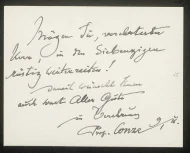 Mögen Sie, verehrtester
Herr, in den Siebenzigern
rüstig weiterreiten!
Damit wünscht Ihnen
auch sonst Alles Gute
in Verehrung